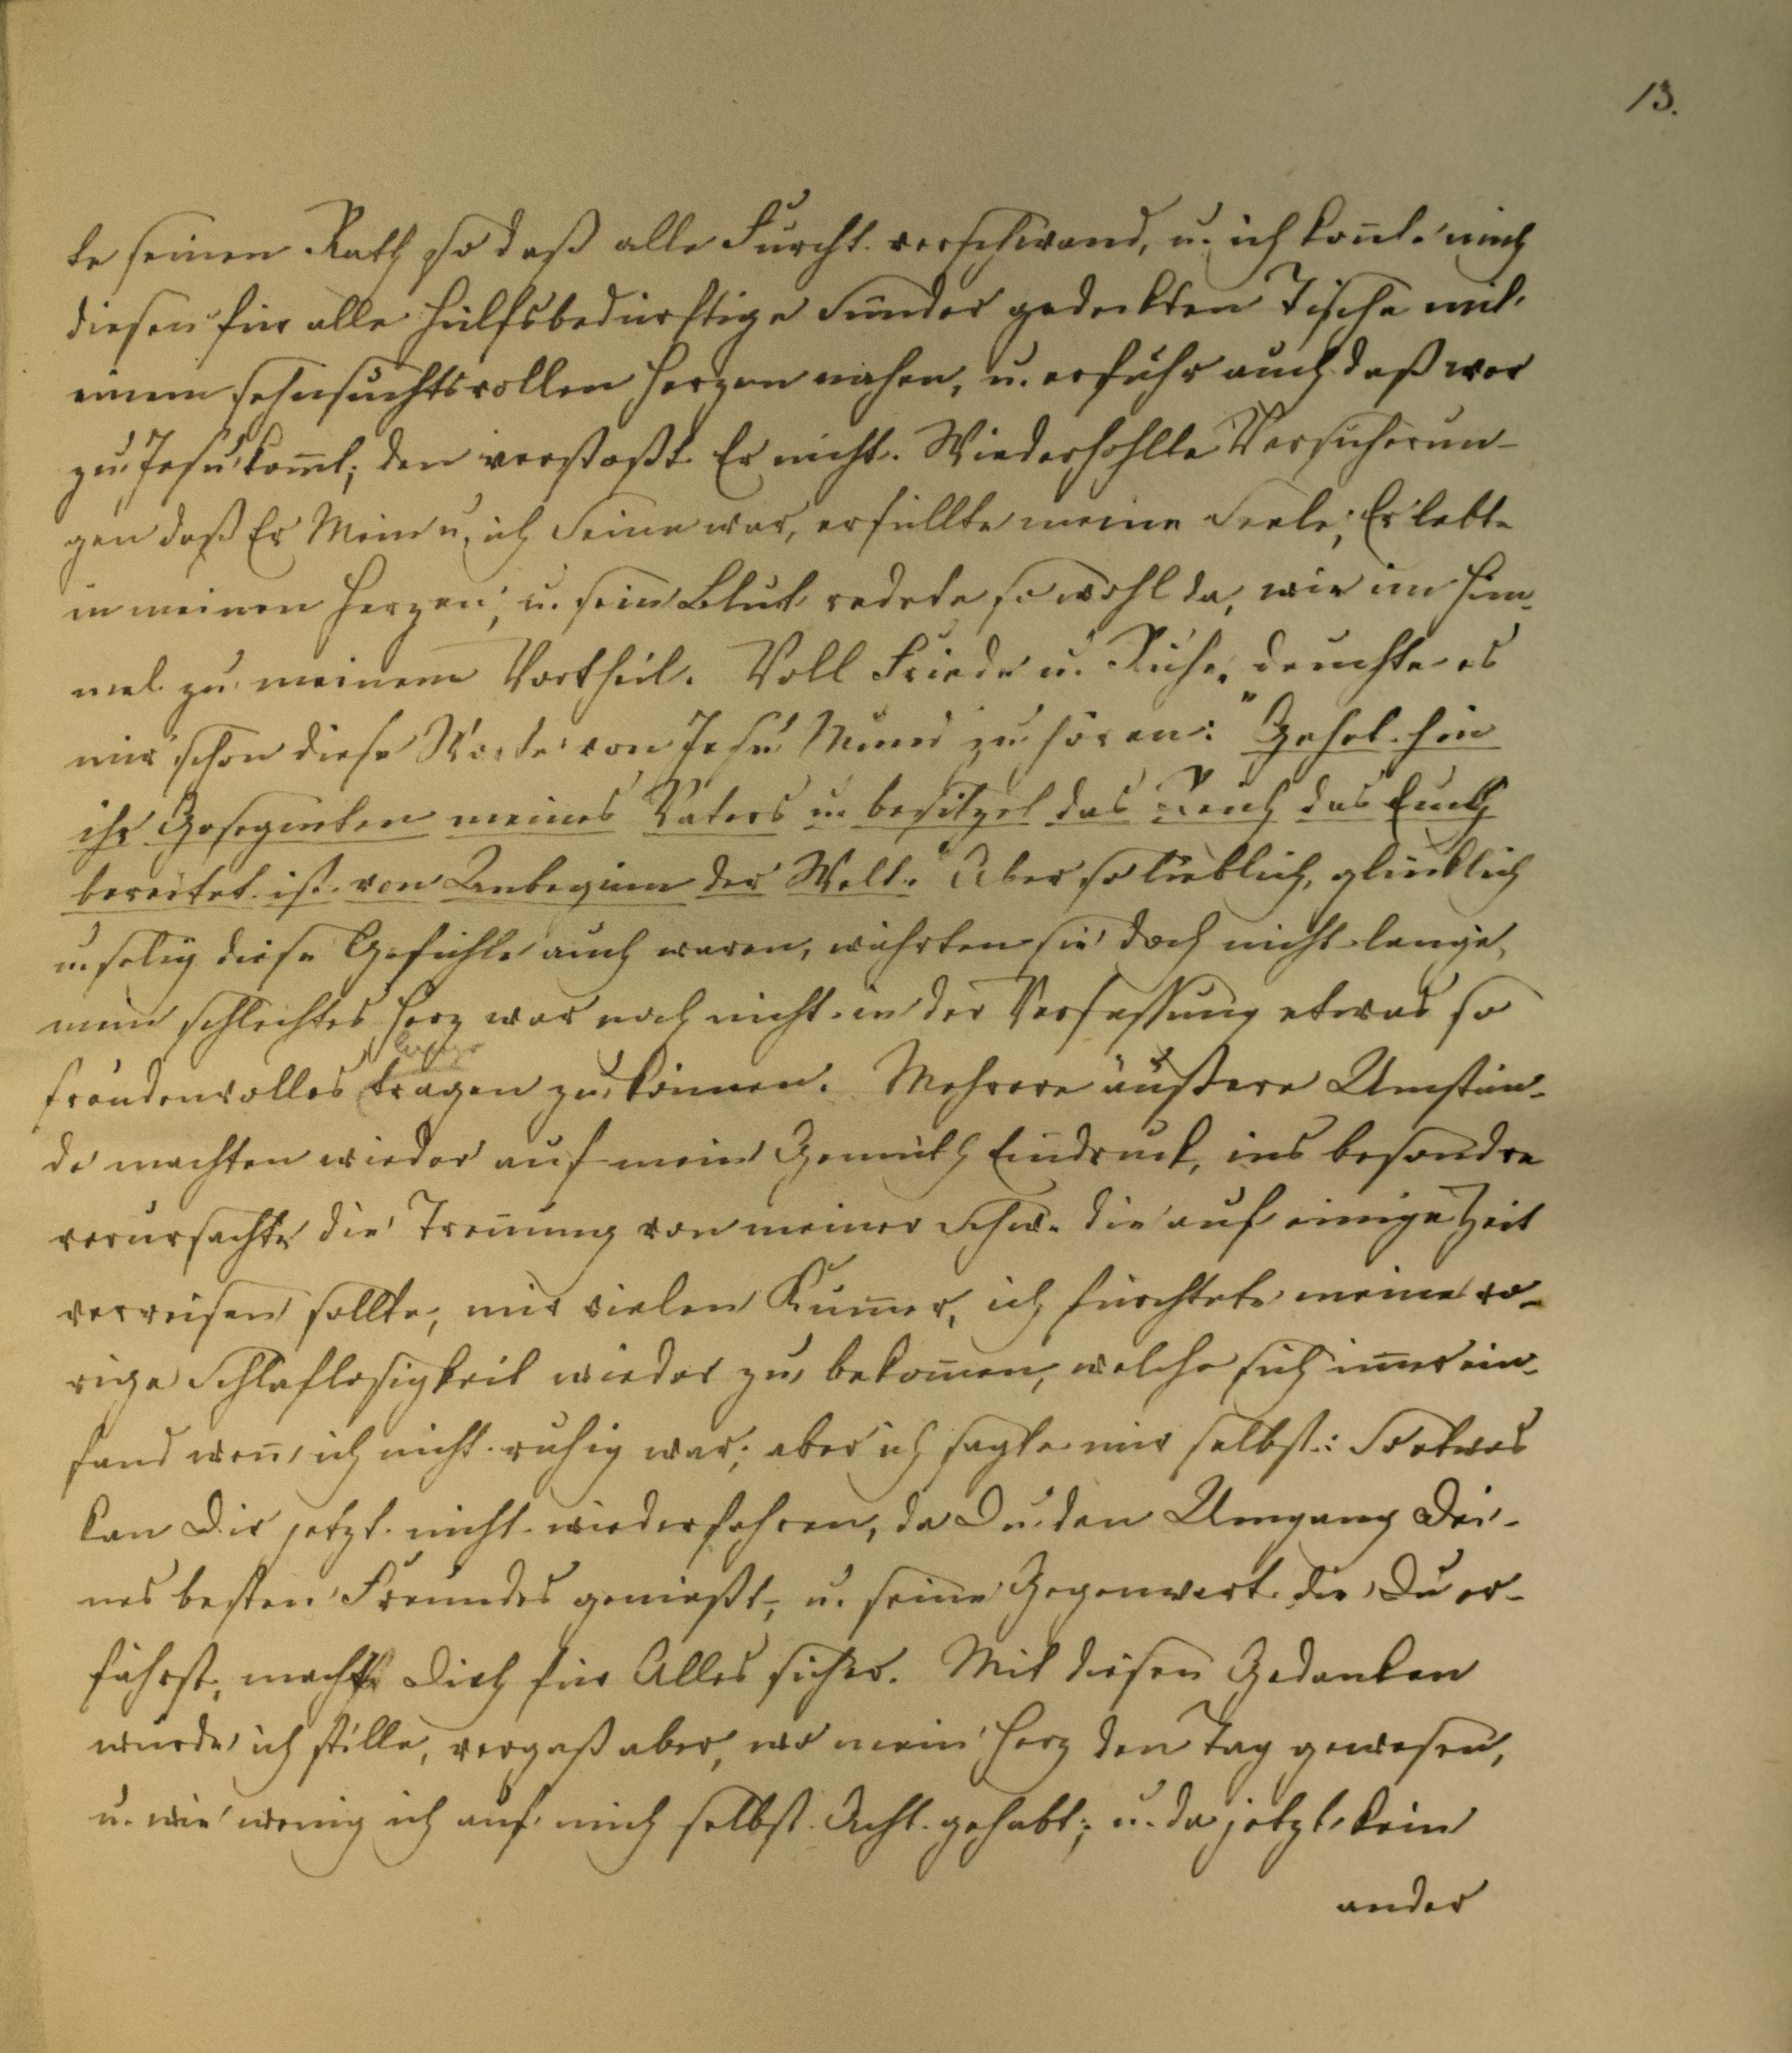 13.
te seinen Rath so daß alle Furcht verschwand, u. ich kon̄te mich
diesen für alle hülfsbedürftige Sünder gedeckten Tische mit
einem sehnsuchtsvollen Herzen nahen, u. erfuhr auch daß wer
zu Jesu kom̄t, den verstoßt Er nicht. Wiederhohlte Versicherun-
gen daß Er Mein u. ich Seine war, erfüllte meine Seele; Er lebte
in meinen Herzen, u. sein Blut redete so wohl da, wie im Him-
mel zu meinem Vortheil. Voll Friede u. Ruhe, deuchte es
mir schon diese Worte von Jesu Mund zu hören: "Gehet hin
ihr Gesegneten meines Vaters u. besitzet das Reich das Euch
bereitet ist von Anbeginn der Welt." Aber so lieblich, glücklich
u. selig diese Gefühle auch waren, währten sie doch nicht lange,
mein schlechtes Herz war noch nicht in der Verfassung etwas so
lange
freudenvolles tragen zu können. Mehrere äußere Umstän-
de machten wieder auf mein Gemüth Eindruck, ins besondre
verursachte die Tren̄ung von meiner Schw. die auf einige Zeit
verreisen sollte, mir vielen Kum̄er, ich fürchtete meine vo-
rige Schlaflosigkeit wieder zu bekom̄en, welche sich im̄er ein-
fand wen̄ ich nicht ruhig war; aber ich sagte mir selbst: So etwas
kan Dir jetzt nicht wiederfahren, da Du den Umgang Dei-
nes besten Freundes genießt, u. seine Gegenwart die Du er-
fährst, macht Dich für Alles sicher. Mit diesen Gedanken
wurde ich stille, vergaß aber, wo mein Herz den Tag gewesen,
u. wie wenig ich auf mich selbst Acht gehabt; u. da jetzt kein
ander